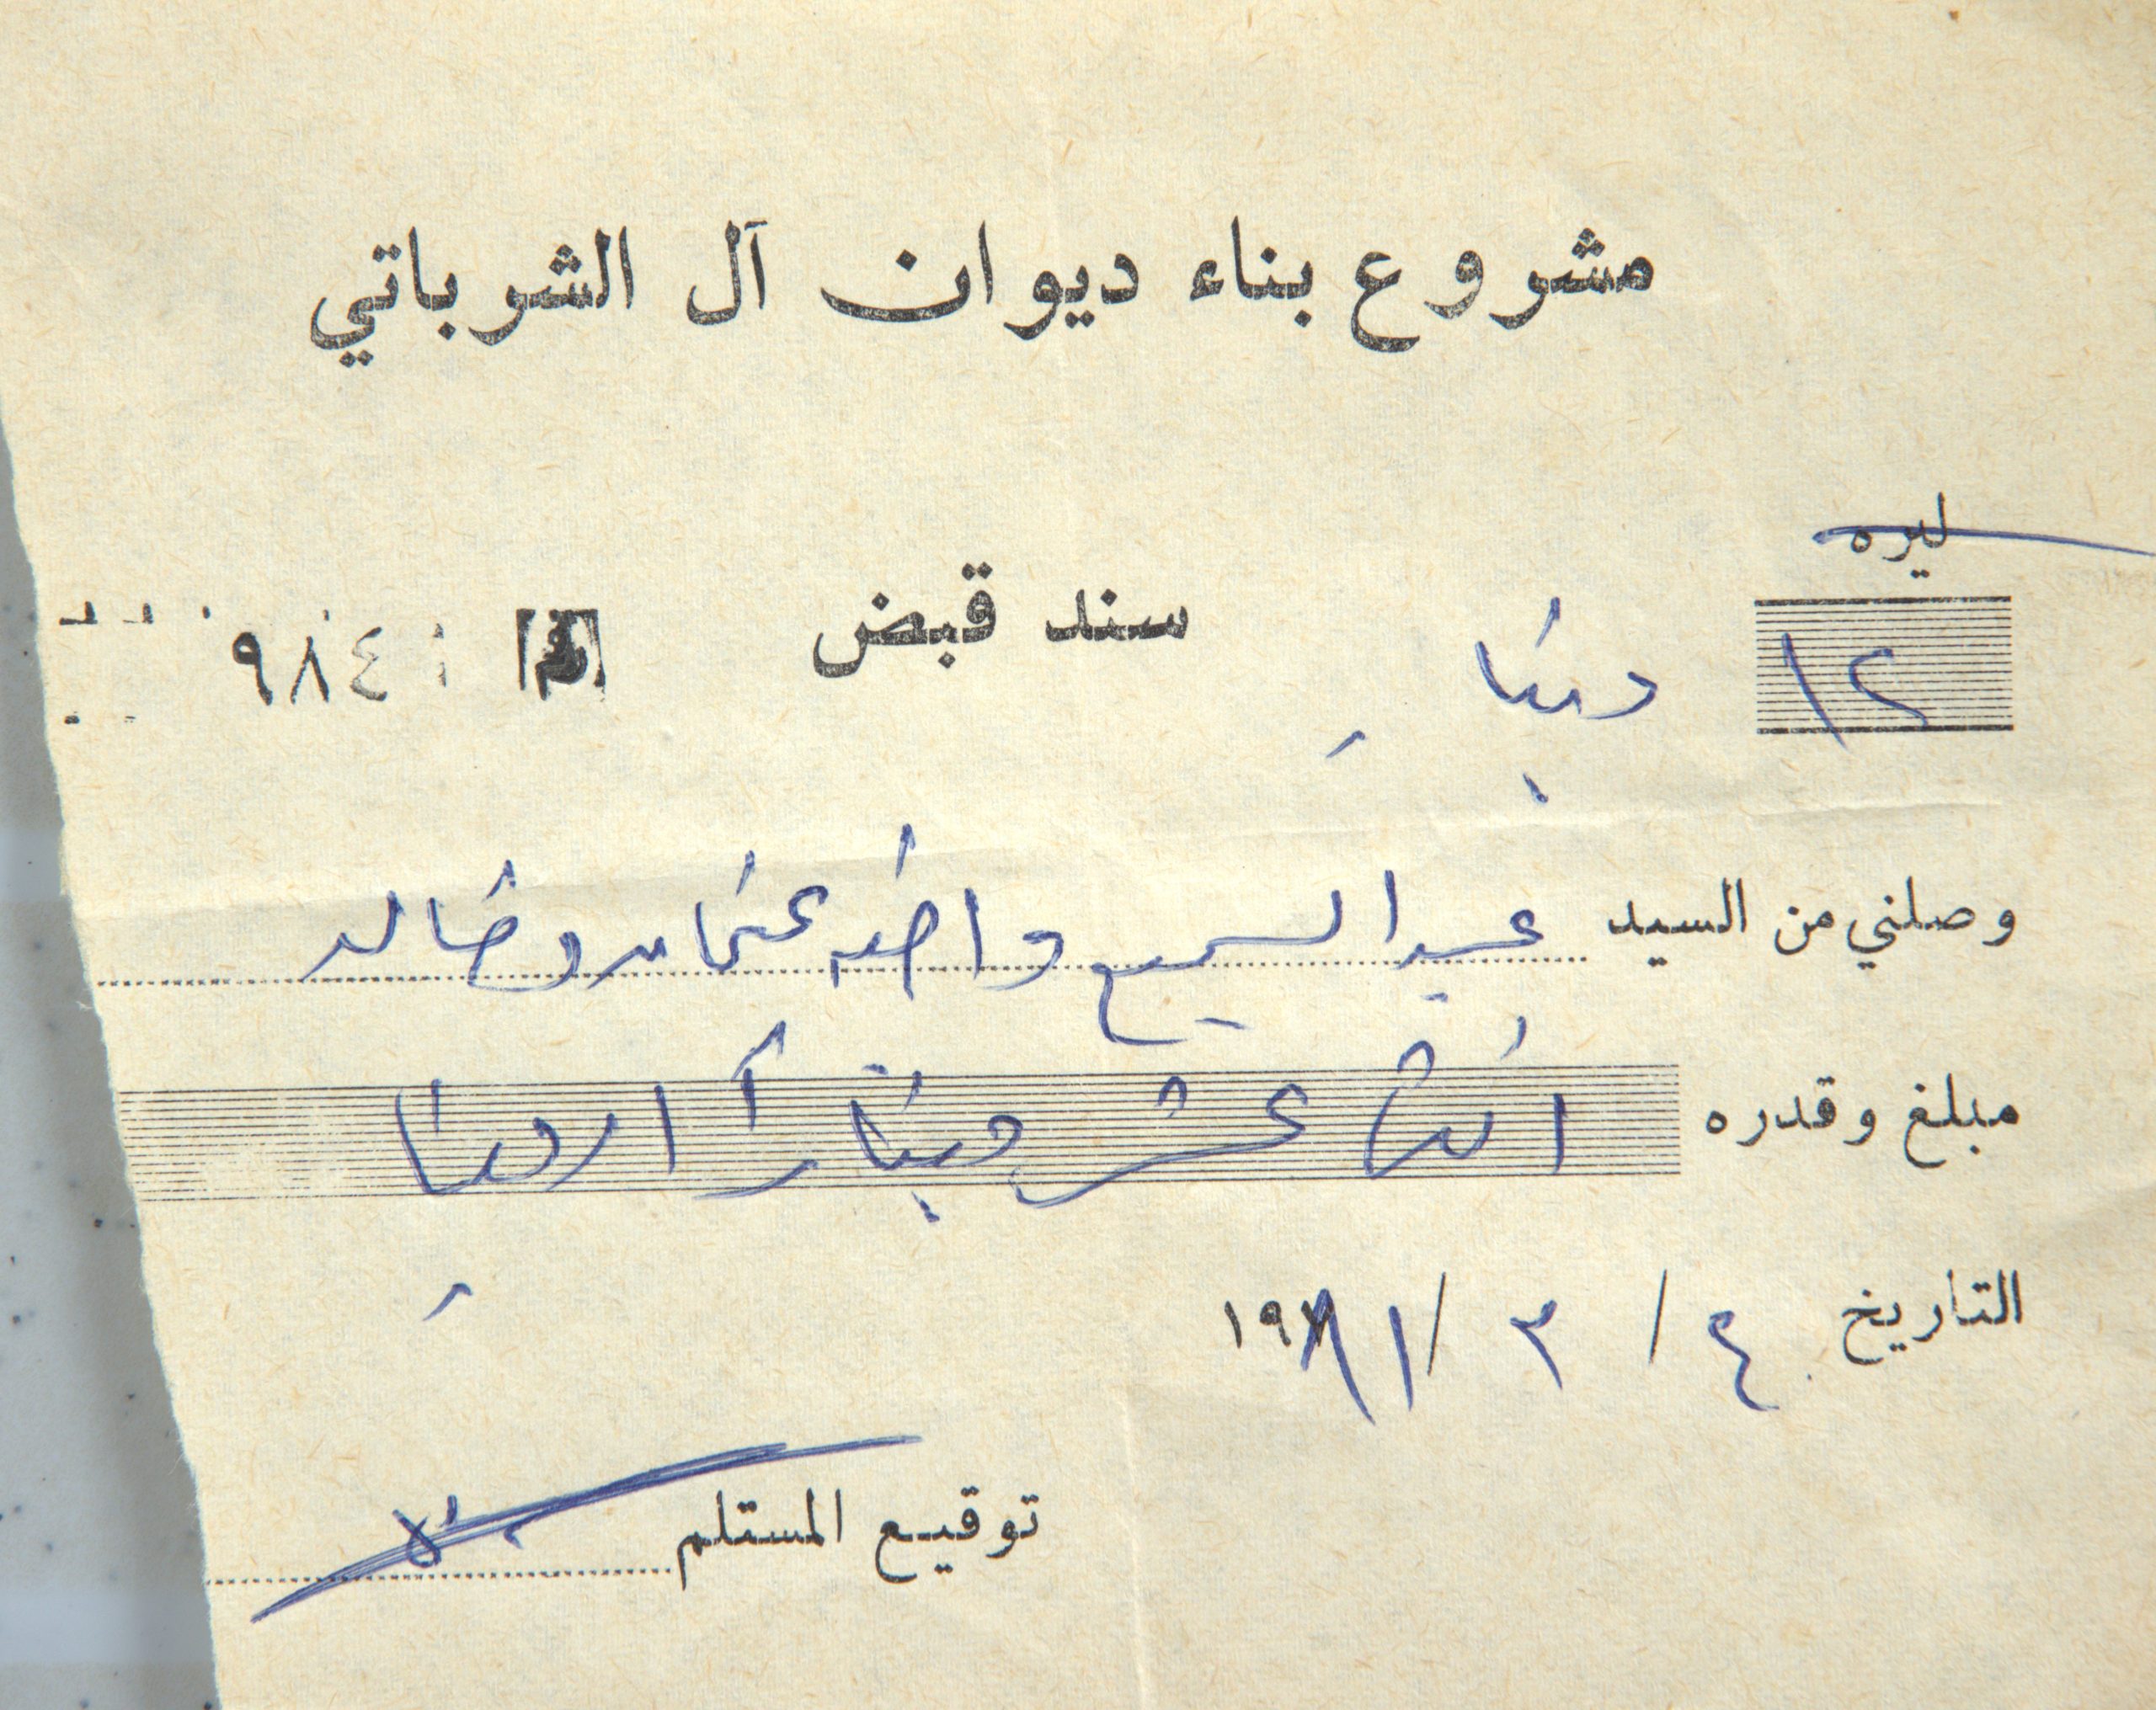 مشروع بناء ديوان آل الشرباتي
ليره
١٢ دينار سند قبض ٩٨٤
وصلني من السيد عبد السميع واخيه عثمان وخالد
مبلغ وقدره اثنا عشر ديناراً اردنيا
التاريخ ٤ / ٣ / ١٩٨١
توقيع المستلم